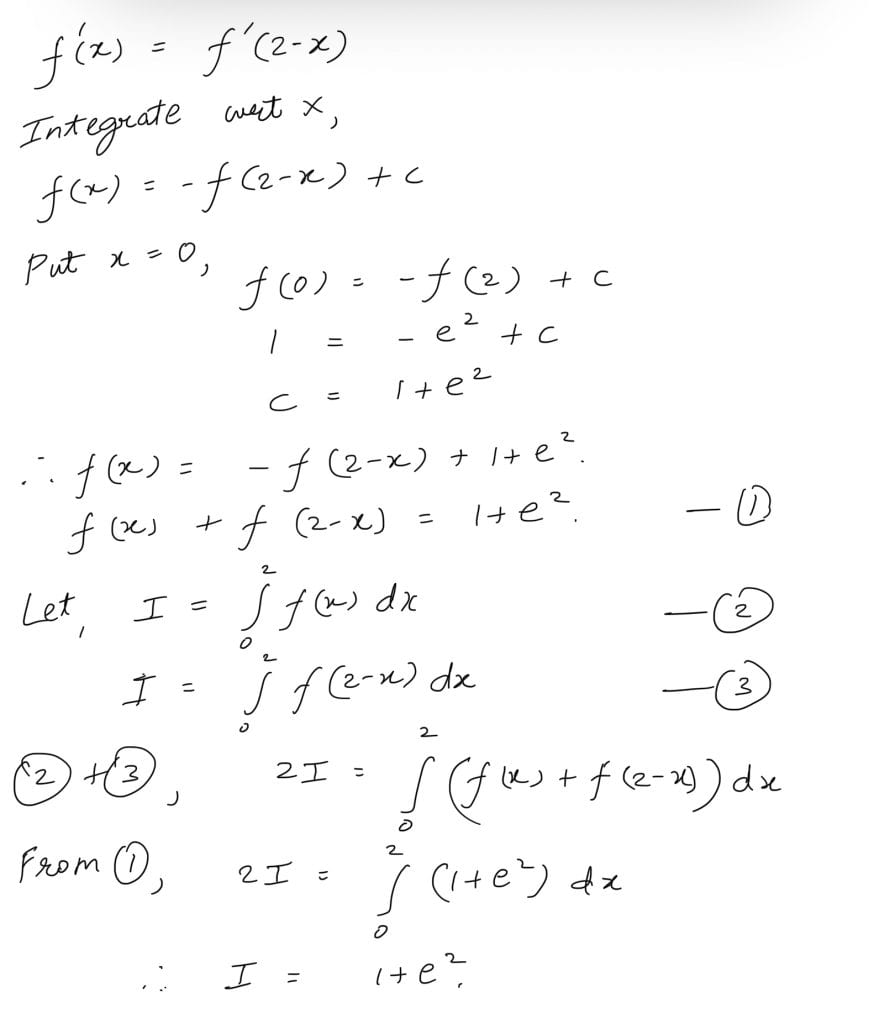 f'(x) = f'(2-x)
Integrate wrt x,
f(x) = -f(2-x) + c
Put x = 0,
f(0) = -f(2) + c
1 = -e² + c
c = 1+e²
∴ f(x) = -f(2-x) + 1+e².
f(x) + f(2-x) = 1+e². — ①
Let, I = ∫₀² f(x) dx — ②
I = ∫₀² f(2-x) dx — ③
② + ③, 2I = ∫₀² (f(x) + f(2-x)) dx
From ①, 2I = ∫₀² (1+e²) dx
∴ I = 1+e².